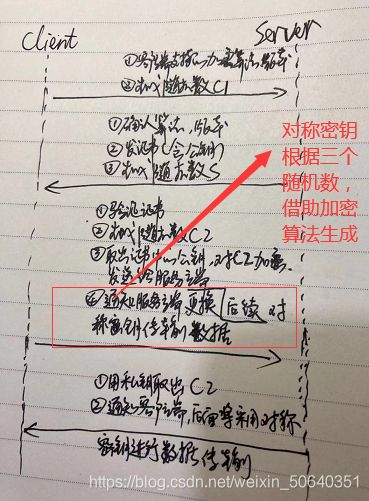 client Server
①客户端支持的加密算法,版本
②生成随机数C1
①确认算法,版本
②发证书(含公钥)
③生成随机数S
①验证证书
②生成随机数C2
③取出证书中公钥,对C2加密,
发送给服务端
④通知服务端更换后续对
称密钥传输数据
对称密钥
根据三个
随机数,
借助加密
算法生成
①用私钥取出C2
②通知客户端,后面要采用对称
密钥进行数据传输
https://blog.csdn.net/weixin_50640351